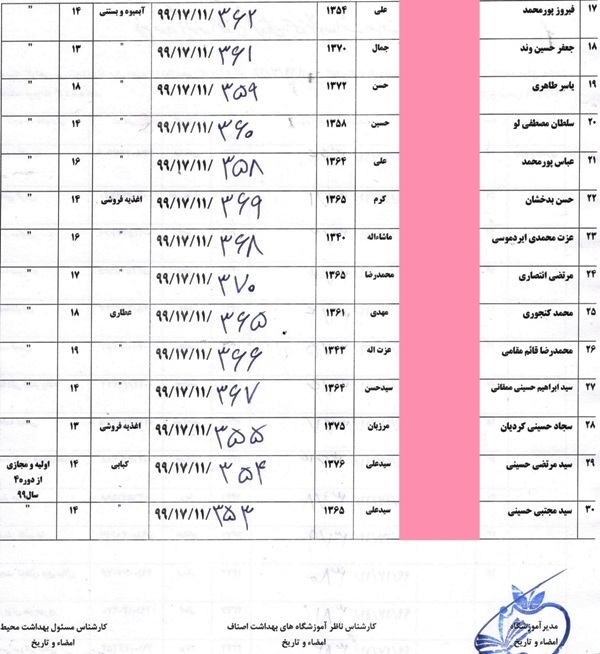 ۱۷ فیروز پورمحمد علی ۱۳۵۴ ۹۹/۱۷/۱۱/۳۶۲ آبمیوه و بستنی ۱۴ "
۱۸ جعفر حسین وند جمال ۱۳۷۰ ۹۹/۱۷/۱۱/۳۶۱ " ۱۳ "
۱۹ یاسر طاهری حسن ۱۳۷۲ ۹۹/۱۷/۱۱/۳۵۹ " ۱۸ "
۲۰ سلطان مصطفی لو حسین ۱۳۵۸ ۹۹/۱۷/۱۱/۳۶۰ " ۱۴ "
۲۱ عباس پورمحمد علی ۱۳۶۴ ۹۹/۱۷/۱۱/۳۵۸ " ۱۶ "
۲۲ حسن بدخشان کرم ۱۳۶۵ ۹۹/۱۷/۱۱/۳۶۹ اغذیه فروشی ۱۴ "
۲۳ عزت محمدی ایردموسی ماشاءاله ۱۳۴۰ ۹۹/۱۷/۱۱/۳۶۸ " ۱۶ "
۲۴ مرتضی انتصاری محمدرضا ۱۳۶۵ ۹۹/۱۷/۱۱/۳۷۰ " ۱۷ "
۲۵ محمد کنجوری مهدی ۱۳۶۱ ۹۹/۱۷/۱۱/۳۶۵ عطاری ۱۸ "
۲۶ محمدرضا قائم مقامی عزت اله ۱۳۴۳ ۹۹/۱۷/۱۱/۳۶۶ " ۱۹ "
۲۷ سید ابراهیم حسینی ممقانی سیدحسن ۱۳۶۴ ۹۹/۱۷/۱۱/۳۶۷ " ۱۴ "
۲۸ سجاد حسینی کردیان مرزبان ۱۳۷۵ ۹۹/۱۷/۱۱/۳۵۵ اغذیه فروشی ۱۳ "
۲۹ سید مرتضی حسینی سیدعلی ۱۳۷۶ ۹۹/۱۷/۱۱/۳۵۴ کبابی ۱۴ اولیه و مجازی
از دوره۴
سال۹۹
۳۰ سید مجتبی حسینی سیدعلی ۱۳۶۵ ۹۹/۱۷/۱۱/۳۵۳ " ۱۴ "
مدیرآموزشگاه کارشناس ناظر آموزشگاه های بهداشت اصناف کارشناس مسئول بهداشت محیط
امضاء و تاریخ امضاء و تاریخ امضاء و تاریخ